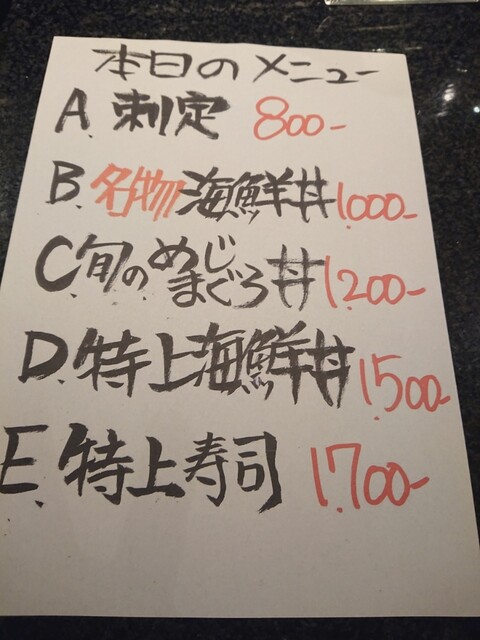 本日のメニュー
A. 刺定 800-
B. 名物海鮮丼 1.000-
C. 旬のめじまぐろ丼 1.200-
D. 特上海鮮丼 1.500-
E. 特上寿司 1.700-